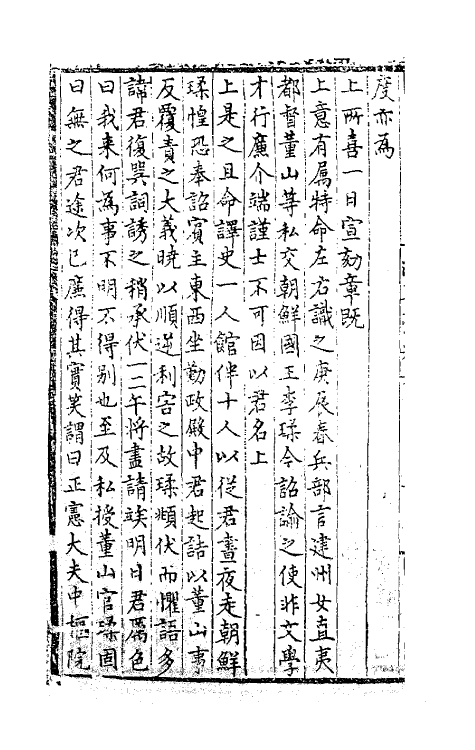 度亦為
上所喜一日宣劾章旣
上意有屬特命左右識之庚辰春兵部言建州女直夷
都督董山等私交朝鮮國王李瑈今詔諭之使非文學
才行廉介端謹士不可因以君名上
上是之且命譯史一人館伴十人以從君晝夜走朝鮮
瑈惶恐奉詔賓主東西坐勤政殿中君起詰以董山事
反覆責之大義曉以順逆利害之故瑈頫伏而懼語多
諱君復巽詞誘之稍承伏一二午將盡請竢明日君厲色
曰我来何為事不明不得别也至及私授董山官瑈固
曰無之君途次已廉得其實笑謂曰正憲大夫中樞院